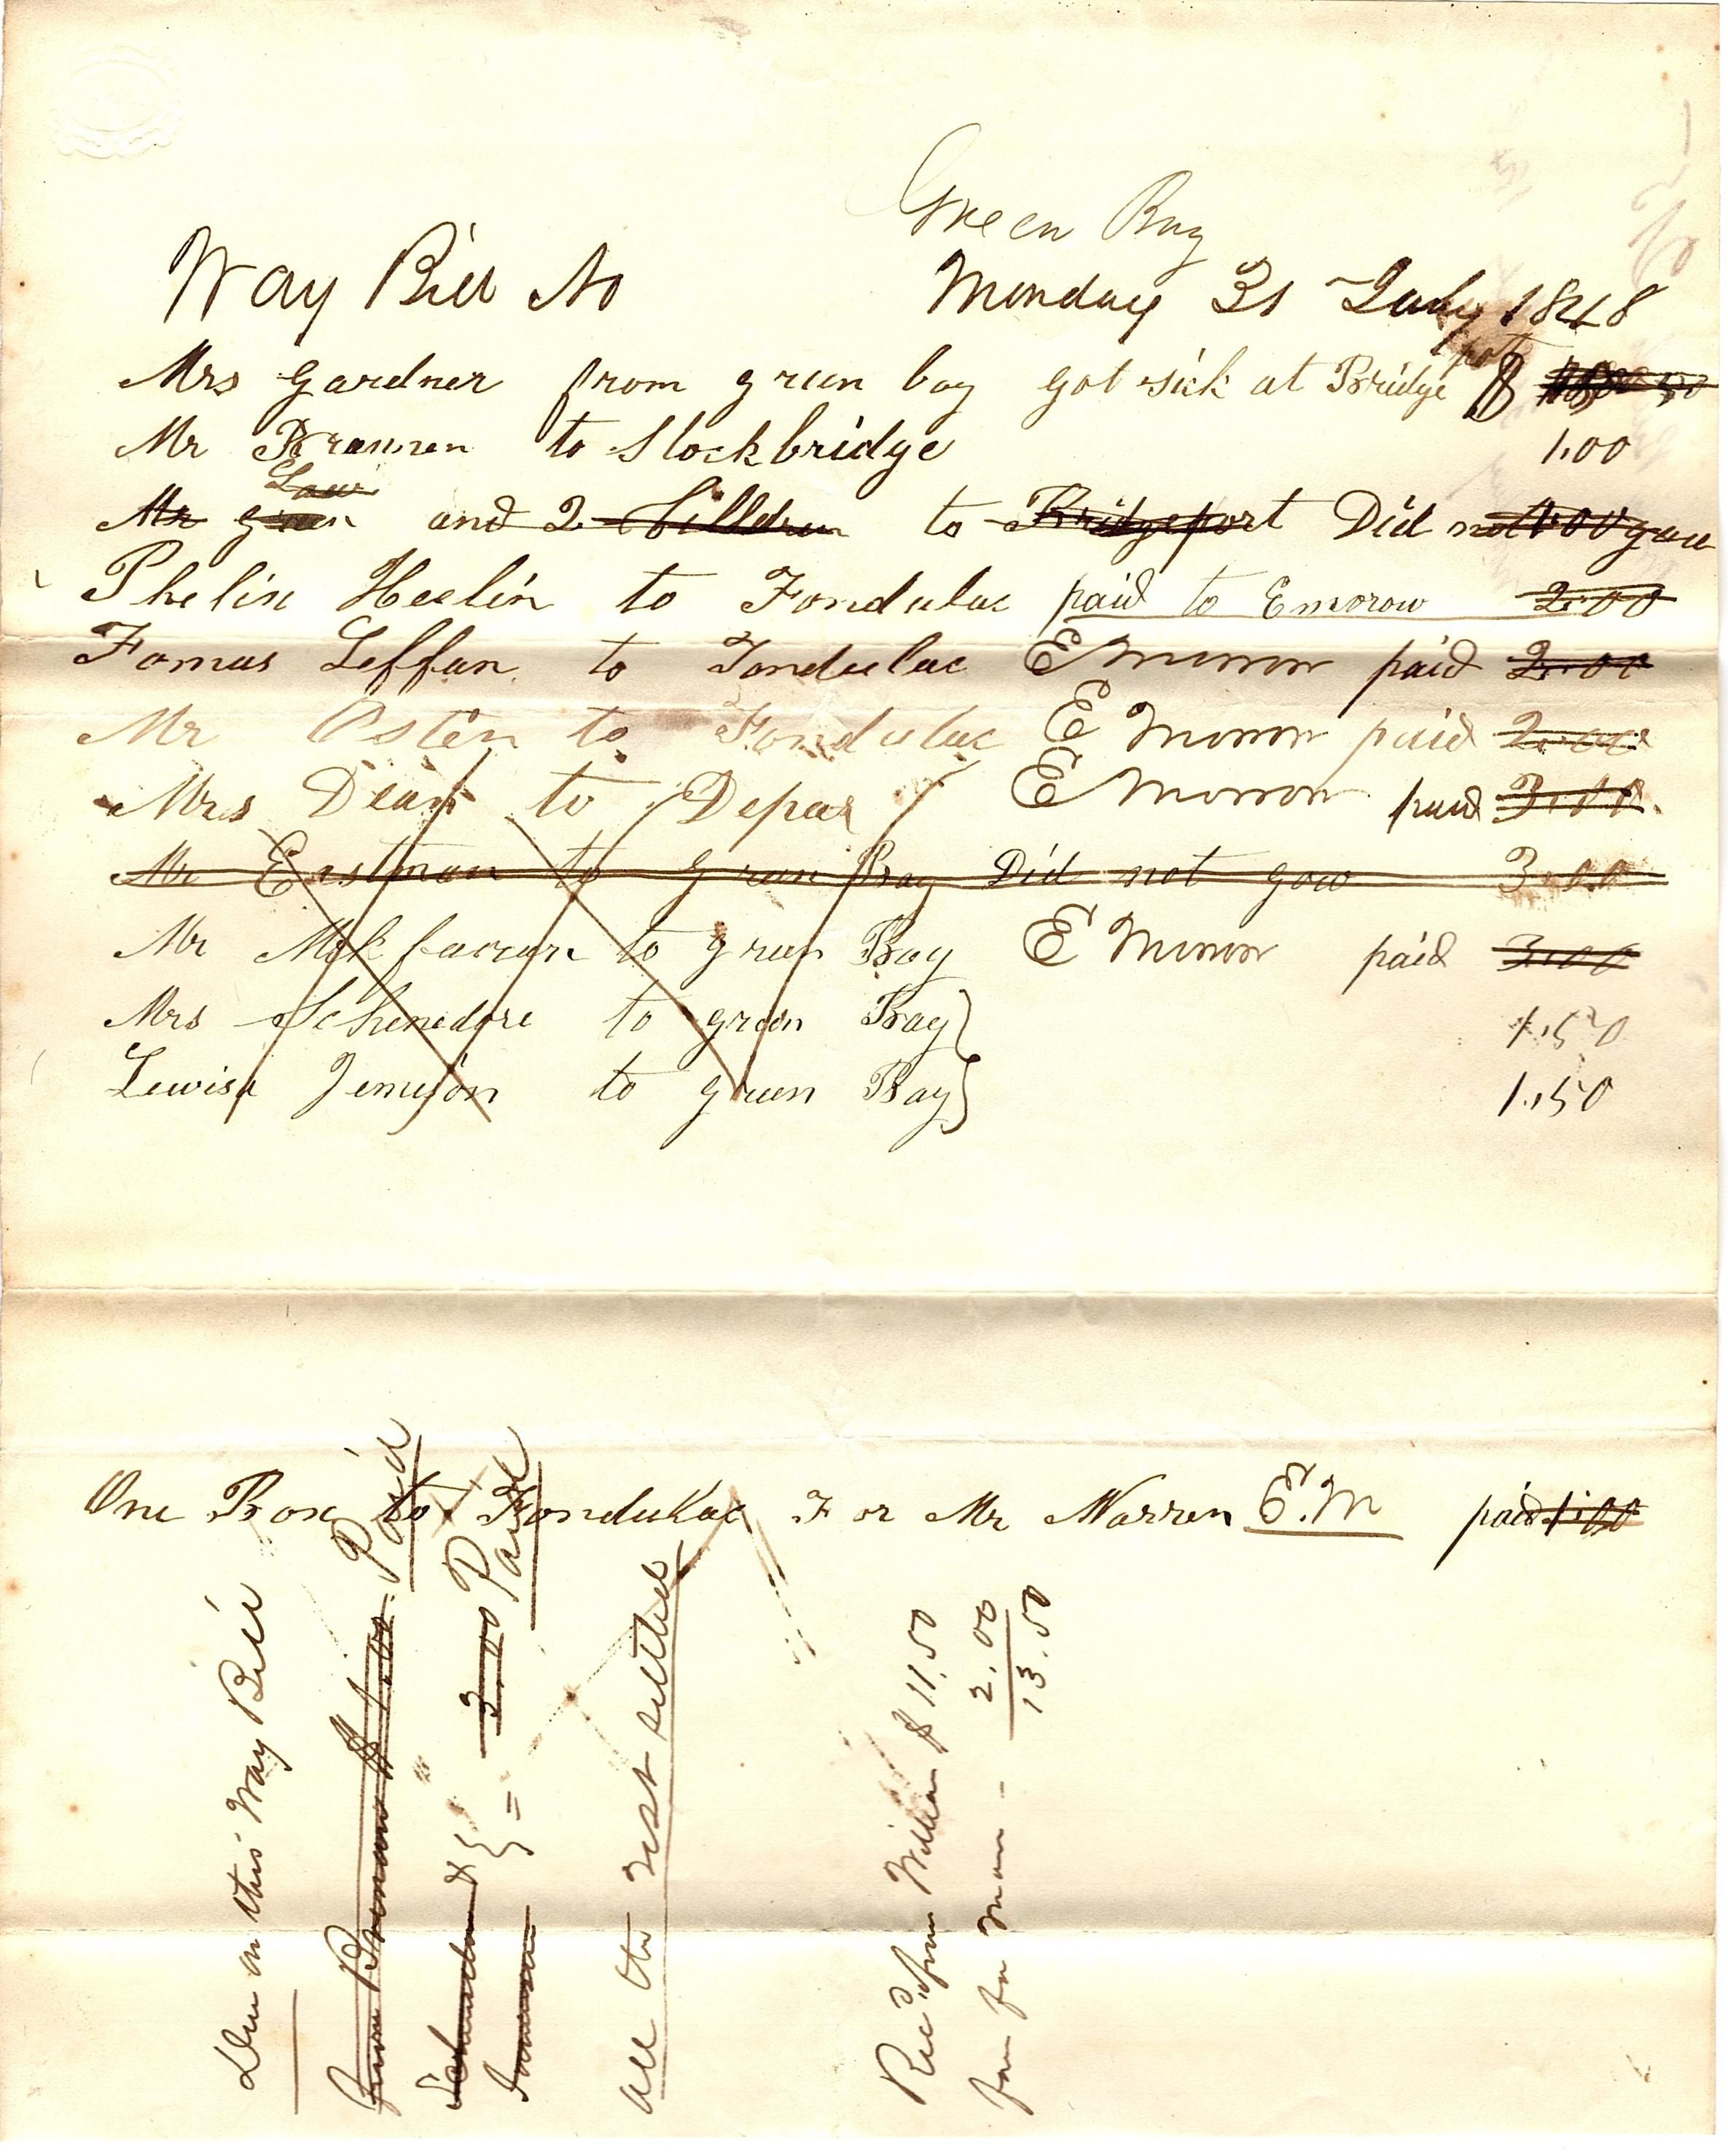 Green Bay
Way Bill No Monday 31 July 1848
Mrs Gardner from green bay got sick at Bridge port $
Mr Brannen to Stockbridge 1.00
Law
Mr green and 2 to Bridgeport Did not 1.00 gow
Phelin Heelin to Fondulac paid to Emorow 2.00
Fomas Leffan to Fondulac E Morrow paid 2.00
Mr Osten to Fondulac E Morrow paid 2.00
Mrs Dean to Depar E Morrow paid 3.00
Mr Eastman to green Bay Did not gow 3.00
Mr to green Bay E Morrow paid 3.00
Mrs Schenedore to green Bay } 1.50
Lewisa Jemison to green Bay } 1.50
One Box to Fondulac For Mr Warren E.M paid 1.00
Due on this Way Bill
from $ 1.00 Paid
&
} = 3.00 Paid
all the rest settled
Recd from William $ 11.50
from for Man - 2.00
13.50